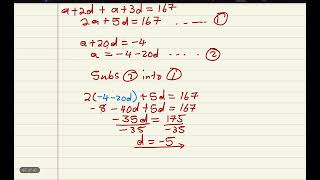 a+2d + a+3d = 167
2a + 5d = 167 ...... ①
a+20d = -4
a = -4-20d .... ②
Subs ② into ①
2(-4-20d) + 5d = 167
-8 -40d + 5d = 167
-35d = 175
-35 -35
d = -5